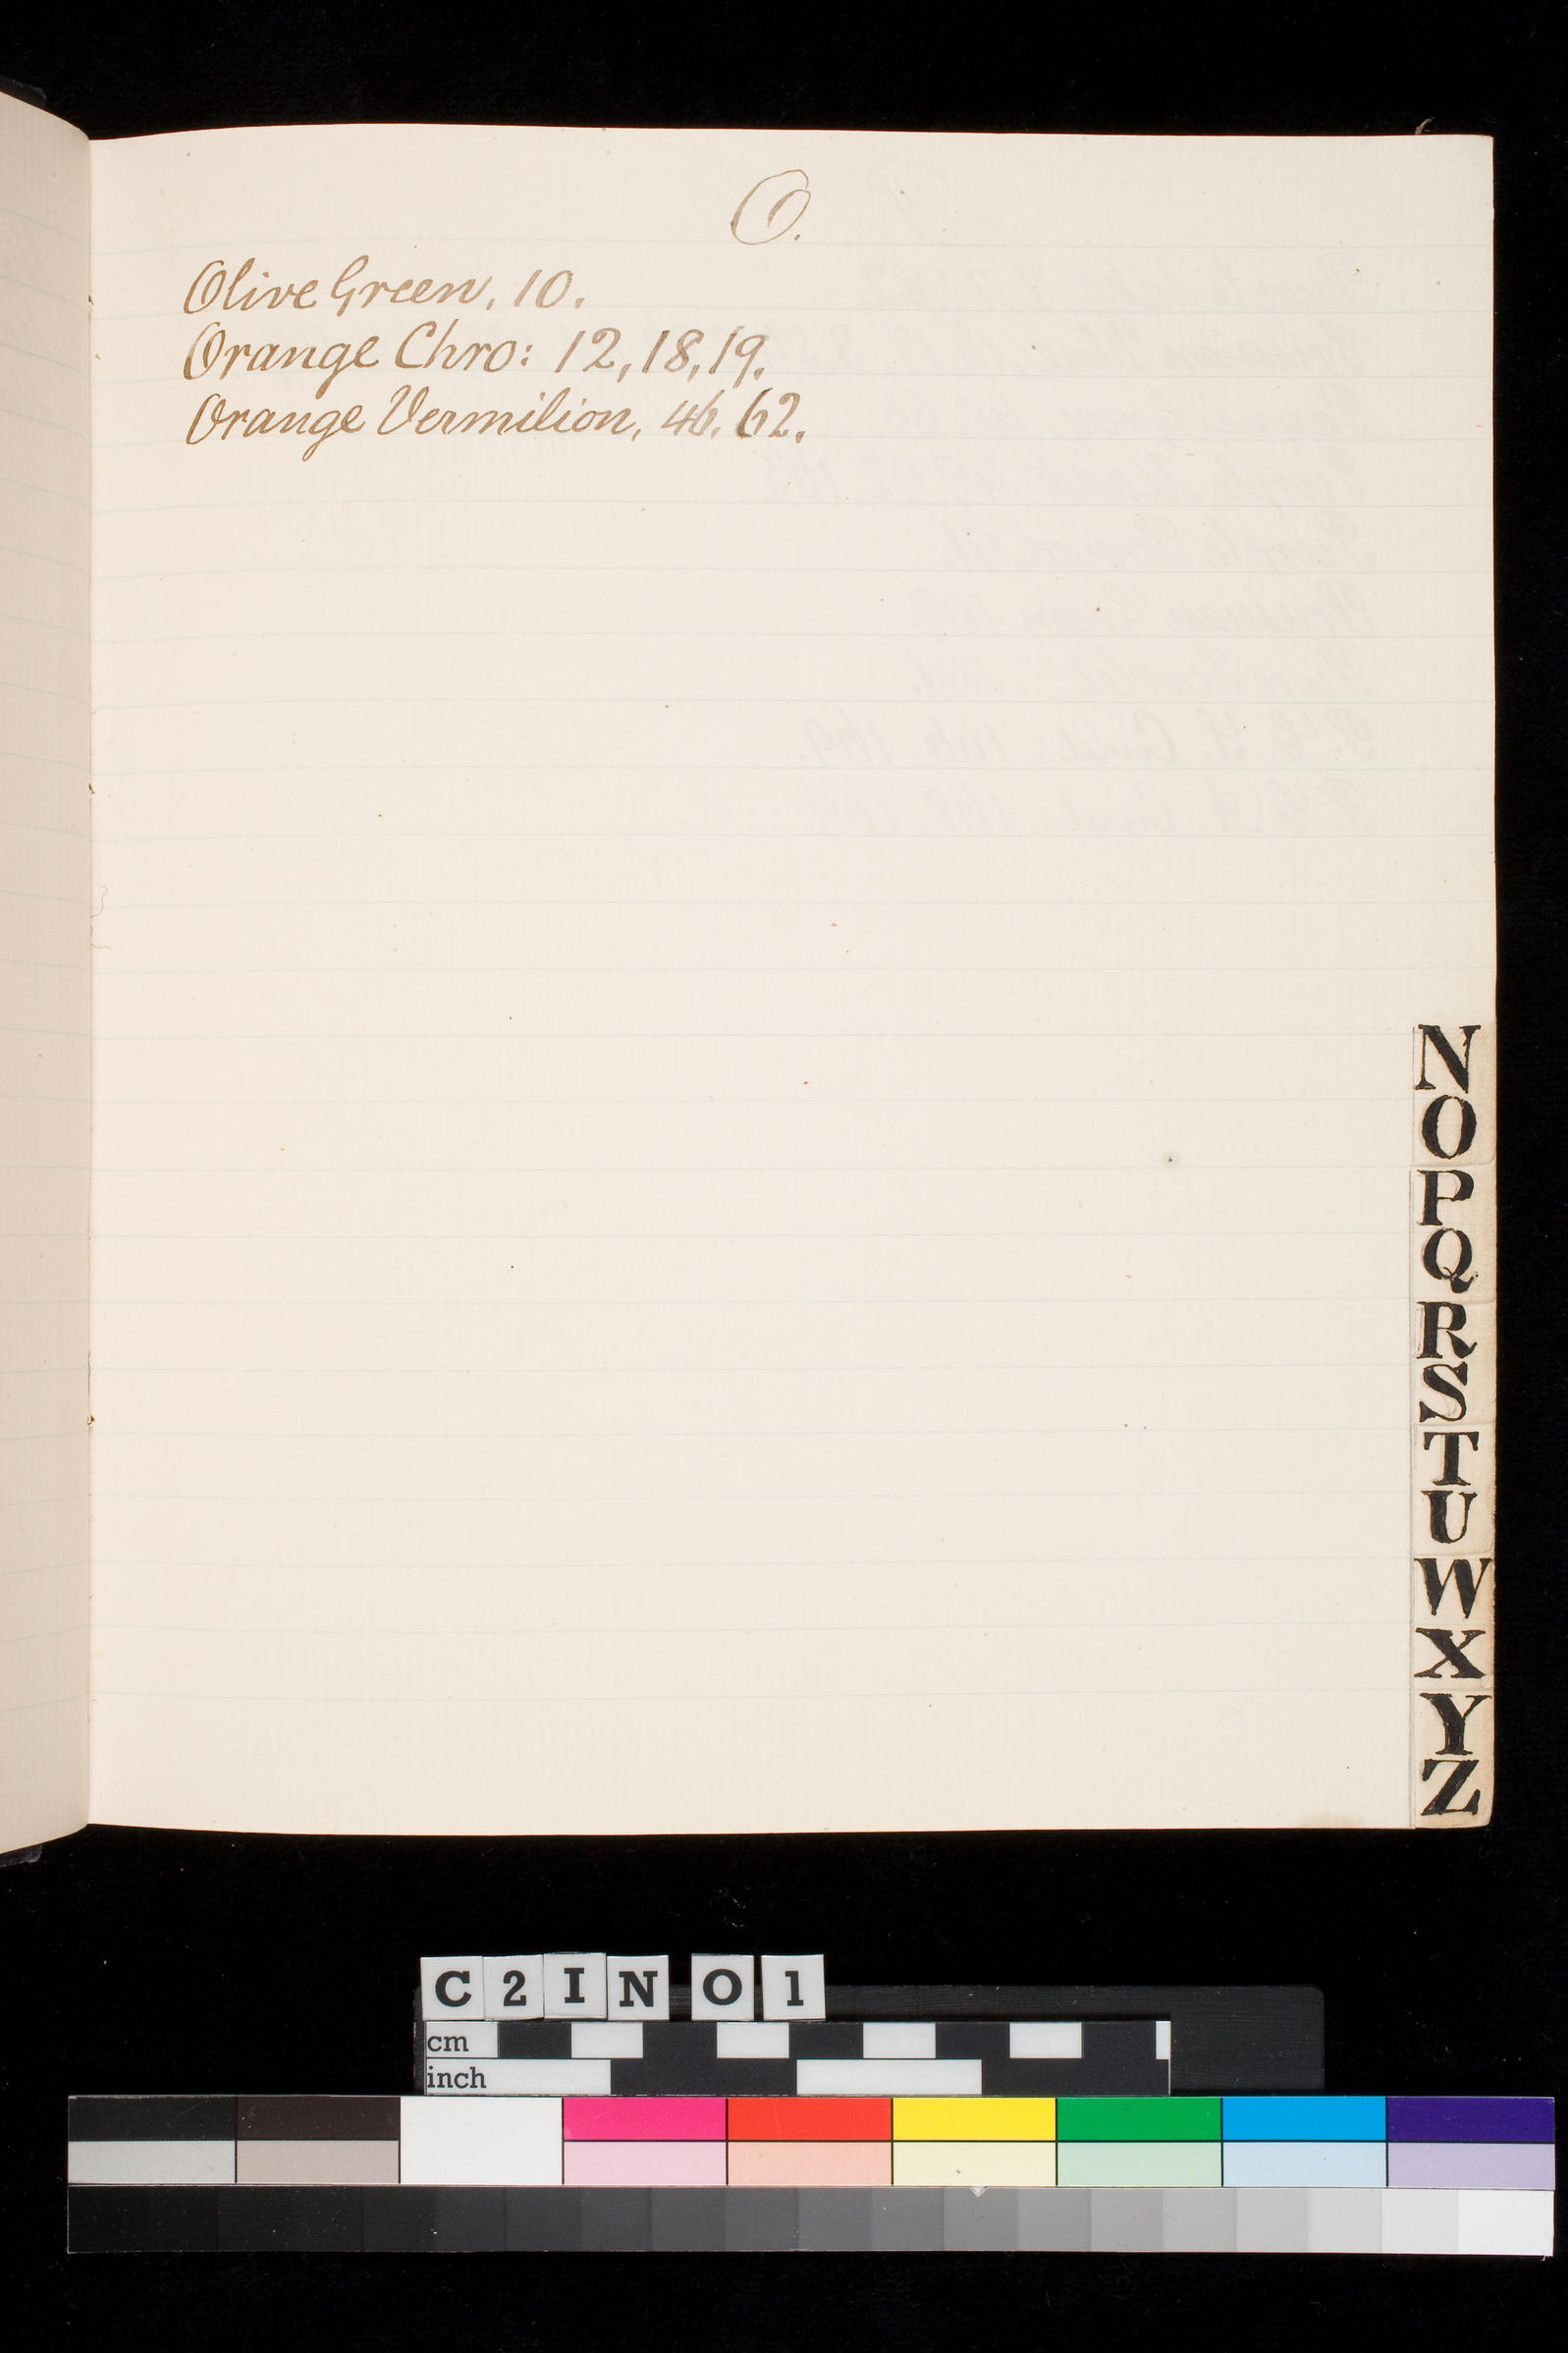 O.
Olive Green, 10.
Orange Chro: 12, 18, 19.
Orange Vermilion, 46, 62.
N
O
P
Q
R
S
T
U
W
X
Y
Z
C2IN O1
cm
inch